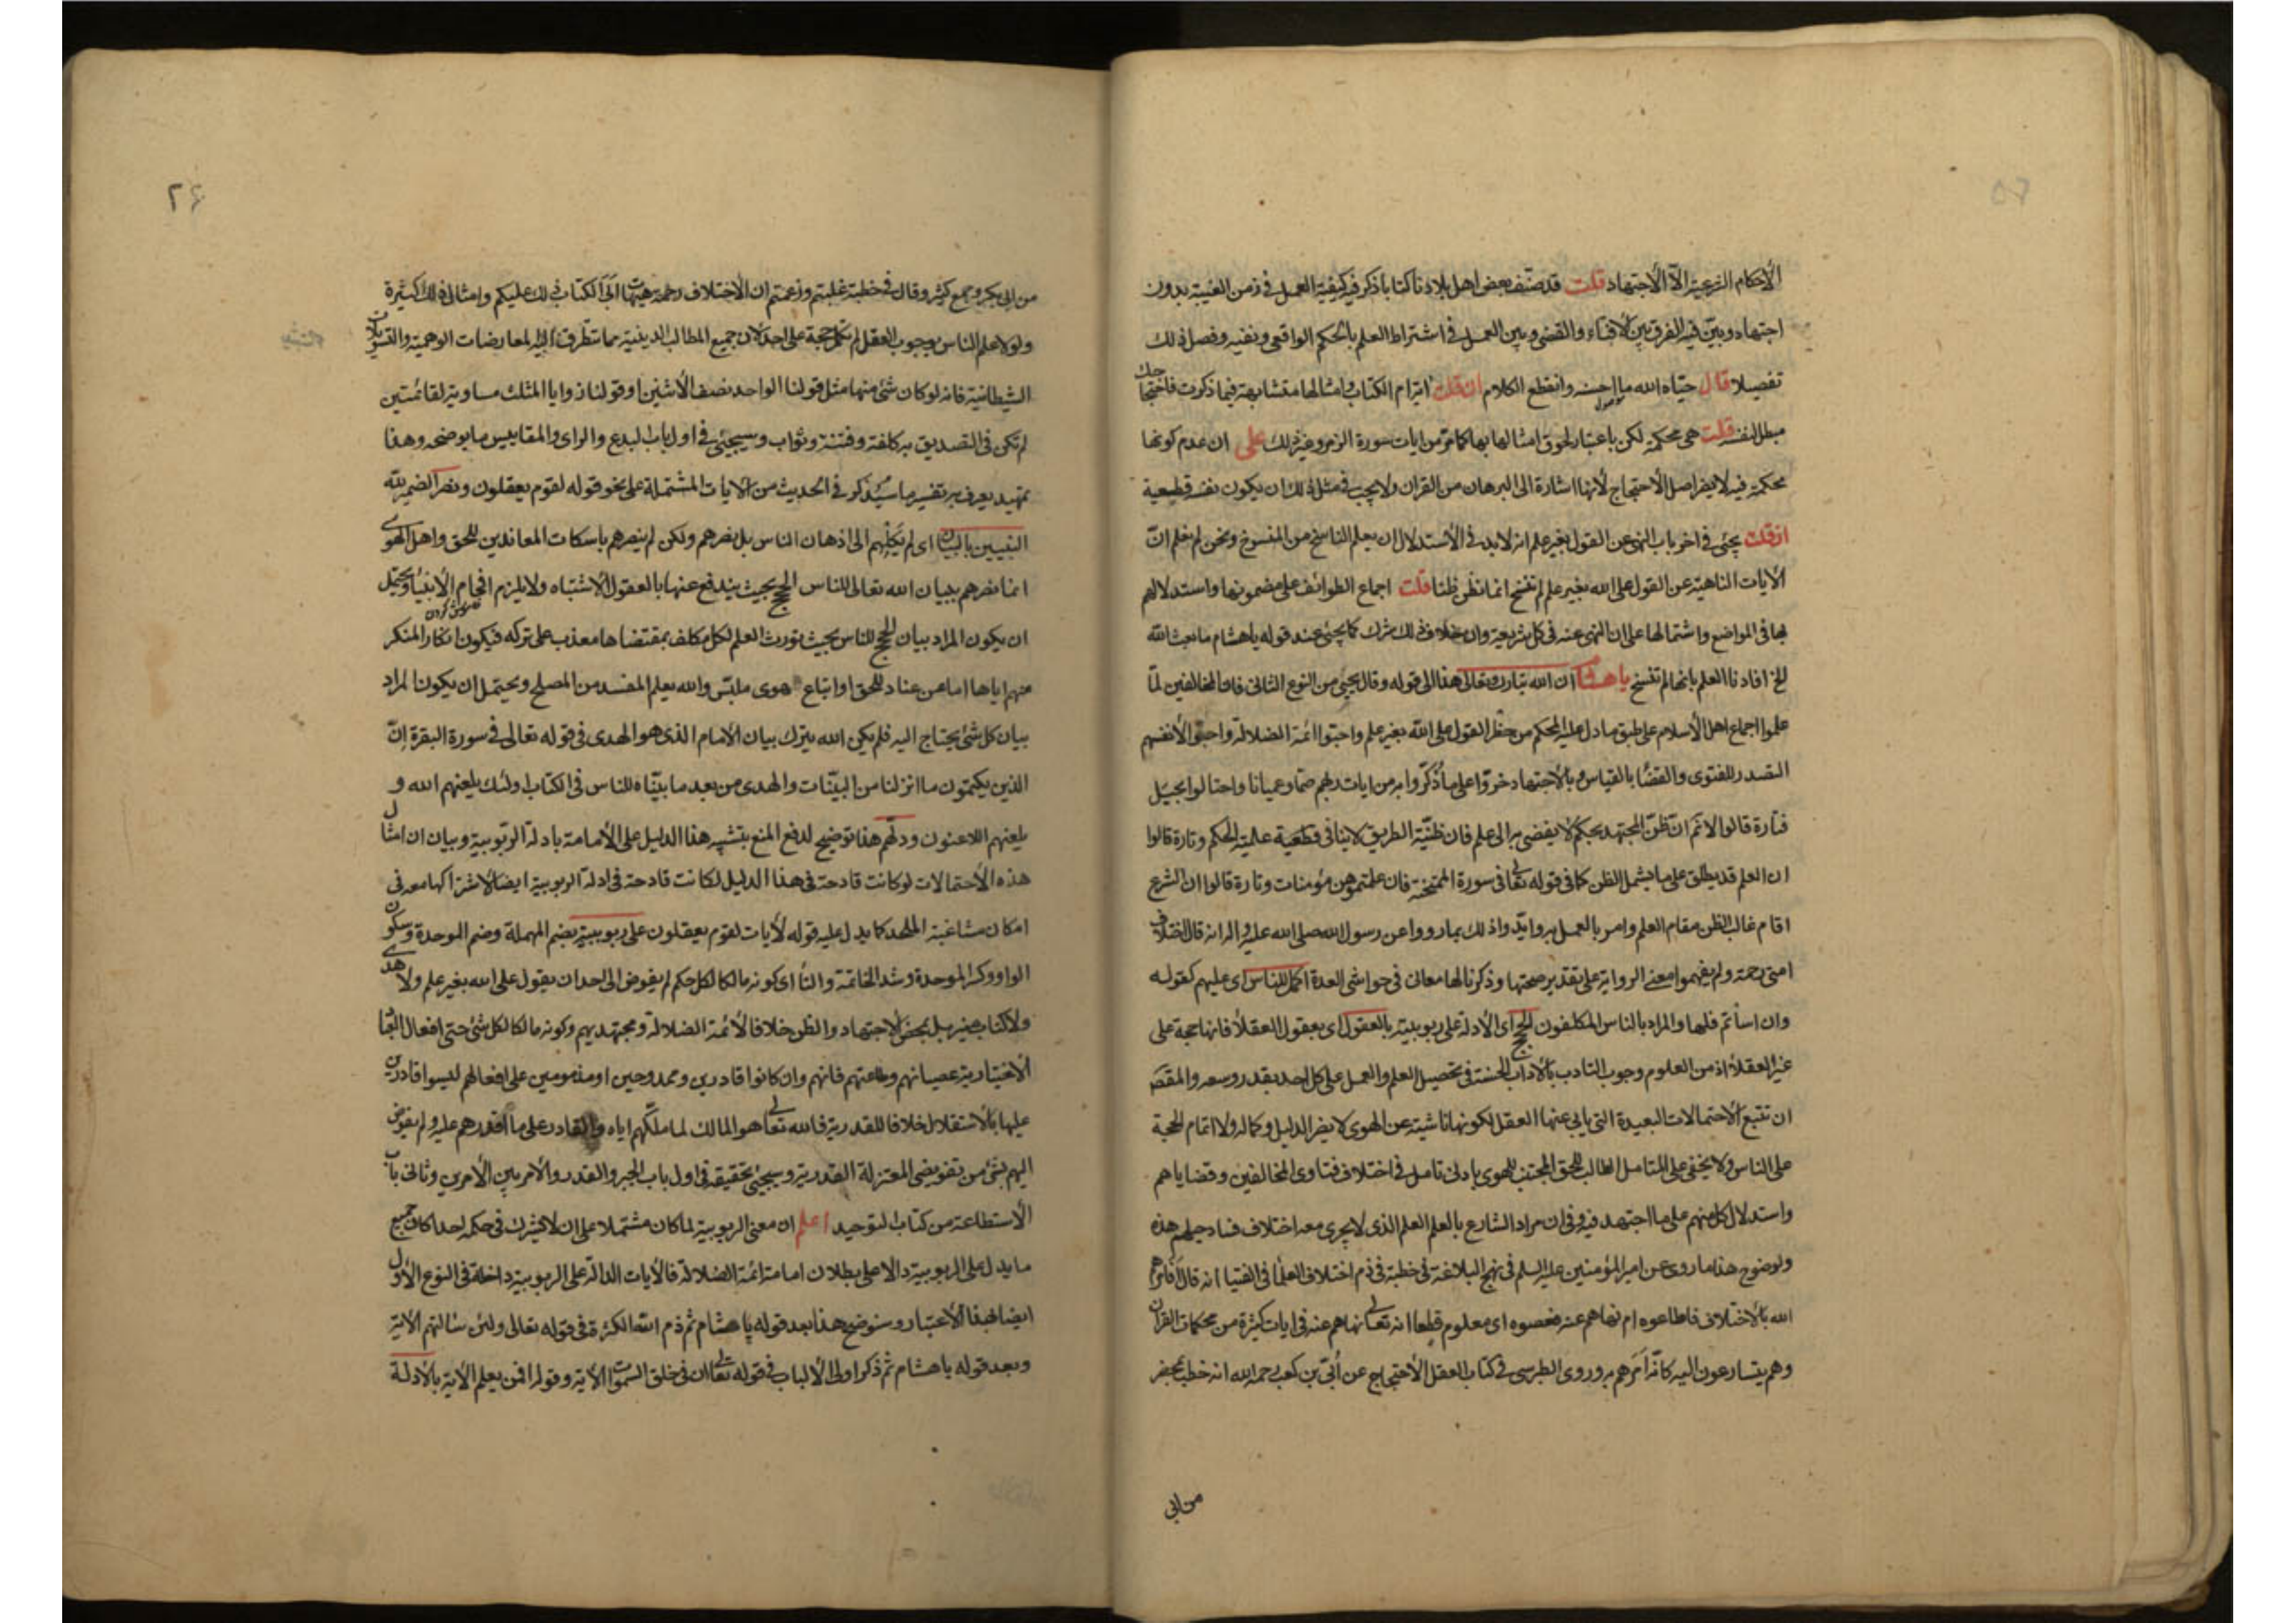 الأحكام الشرعية الا الأجتهاد قلت قد صنّف بعض اهل بلادنا كتابا ذكر فيه كيفية العمل في زمن الغيبة بدون
اجتهاد وبيّن فيه الفرق بين الافتاء والقضاء وبين العمل في اشتراط العلم بالحكم الواقعي ونفيه وفصل ذلك
تفصيلا قال حيّاه الله ما احسنه وانقطع الكلام ان قلت ايتام الكتاب وامثالها متشابهة فيما ذكرت فاحتجاجك
مبطل لنفسه قلت هي محكمة لكن باعتبار لحوق امثالها بها كما مرّ من ايات سورة الزمر وغير ذلك على ان عدم كونها
محكمة فيه لا يضر اصل الأحتجاج لأنها اشارة الى البرهان من القران ولا يجب في مثل ذلك ان يكون نفسه قطيعية
ان قلت يجيئ في اخر باب النهي عن القول بغير علم انه لابد في الأستدلال ان يعلم الناسخ من المنسوخ ونحن لم نعلم انّ
الأيات الناهية عن القول على الله بغير علم لم تنسخ انما نظن ظنا قلت اجماع الطوائف على مضمونها واستدلالهم
بها في المواضع واشتمالها على ان النهي عنه في كل شريعة وان خلاف ذلك شرك كما يجيئ عند قوله ياهشام ما بعث الله
الخ افادنا العلم بانها لم تنسخ ياهشام ان الله تبارك وتعالى هذا الى قوله وقال يجيئ من النوع الثاني فان المخالفين لمّا
علموا اجماع اهل الأسلام على طبق ما دل عليه المحكم من حظر القول على الله بغير علم واحبّوا ائمة الضلالة واحبّوا لأنفسهم
التصدر للفتوى والقضا بالقياس وبالأجتهاد خرّوا على ما ذكّروا به من ايات ربهم صمّا وعميانا واحتالوا بحيَل
فتارة قالوا لا نم ان ظنّ المجتهد بحكم لا يفضي به الى علم فان ظنّية الطريق لا ينافي قطعية علمية الحكم وتارة قالوا
ان العلم قد يطلق على ما يشمل الظن كما في قوله تعالى في سورة الممتحنة فان علمتموهن مؤمنات وتارة قالوا ان الشرع
اقام غالب الظن مقام العلم وامر بالعمل به وايدوا ذلك بما رووا عن رسول الله صلى الله عليه واله انه قال اختلاف
امتي رحمة ولم يفهموا معنى الرواية على تقدير صحتها وذكرنا لها معان في حواشي العدة اكمل للناس اى عليهم كقوله
وان اسأتم فلها والمراد بالناس المكلفون الحجج اى الأدلة على ربوبيته بالعقول اى بعقول العقلأ فانها حجة على
غير العقلأ اذ من العلوم وجوب التادب بالأداب الحسنة في تحصيل العلم والعمل على كل احد بقدر وسعه والمقصد
ان تتبع الأحتمالات البعيدة التي يابى عنها العقل لكونها ناشية عن الهوى لا يضر الدليل وكماله ولا اتمام الحجة
على الناس ولا يخفى على المتامل الطالب للحق المجتنب للهوى بادنى تامل في اختلاف فتاوى المخالفين وقضاياهم
واستدلال كل منهم على ما اجتهد فيه وفي ان مراد الشارع بالعلم العلم الذى لا يجرى معه اختلاف فساد حيلهم هذه
ولوضوح هذا ما روى عن امير المؤمنين عليه السلم في نهج البلاغة في خطبة في ذم اختلاف العلمأ في الفتيا انه قال أفامرهم
الله بالأختلاف فاطاعوه ام نهاهم عنه فعصوه اى معلوم قطعا انه تعالى نهاهم عنه في ايات كثيرة من محكمات القران
وهم يتسارعون اليه كانّه أمرهم به وروى الطبرسى في كتاب العقل الأحتجاج عن أبيّ بن كعب رحمه الله انه خطب بمحضر
من ابي
٢۶
من ابي بكر وجمع كثير وقال في خطبة غلبتم وزعمتم ان الأختلاف رحمة هيهات ابى الكتاب ذلك عليكم وامثال ذلك كثيرة
ولولا علم الناس بوجوب العقل لم تكمل حجة على احد لأن جميع المطالب الدينية مما تتطرق اليه المعارضات الوهمية والتسويلات
الشيطانية فانه لو كان شئ منها مثل قولنا الواحد نصف الأثنين او قولنا زوايا المثلث مساوية لقائمتين
لم تكن في التصديق به كلفة وفتنة وثواب وسيجيئ في اول باب البدع والراى والمقاييس ما يوضحه وهذا
تمهيد يعرف به تفسير ما سيذكر في الحديث من الأيات المشتملة على نحو قوله لقوم يعقلون ونصر الضميرله
النبيين بالبيان اى لم يكلهم الى اذهان الناس بل نصرهم ولكن لم ينصرهم باسكات المعاندين للحق واهل الهوى
انما نصرهم ببيان الله تعالى للناس الحجج بحيث يندفع عنها بالعقول الأشتباه ولا يلزم افحام الأنبياء ويحتمل
ان يكون المراد بيان الحجج للناس بحيث تورث العلم لكل مكلف بمقتضاها معذب على تركه فيكون انكار المنكر
منهم اياها اما عن عناد للحق او اتباع هوى ملبّس والله يعلم المفسد من المصلح ويحتمل ان يكون المراد
بيان كل شئ يحتاج اليه فلم يكن الله يترك بيان الأمام الذى هو الهدى في قوله تعالى في سورة البقرة إنّ
الذين يكتمون ما انزلنا من البيّنات والهدى من بعد ما بيّنّاه للناس في الكتاب اولئك يلعنهم الله و
يلعنهم اللاعنون ودلّهم هذا توضيح لدفع المنع بتشبيه هذا الدليل على الأمامة بادلة الربّوبية وبيان ان امثال
هذه الأحتمالات لو كانت قادحة في هذا الدليل لكانت قادحة في ادلة الربوبية ايضا لاشتراكها معه في
امكان مشاغبة الملحد كما يدل عليه قوله لأيات لقوم يعقلون على ربوبيته بضم المهملة وضم الموحدة وسكون
الواو وكسر الموحدة وشد الخاتمة والتأ اى كونه مالكا لكل حكم لم يفوض الى احد ان يقول على الله بغير علم ولا هدى
ولا كتاب منير بل بمحض الاجتهاد والظن خلافا لأئمة الضلالة ومجتهديهم وكونه مالكا لكل شئ حتى افعال العباد
الأختيارية عصيانهم وطاعتهم فانهم وان كانوا قادرين وممدوحين او مذمومين على افعالهم ليسوا قادرين
عليها بالأستقلال خلافا للقدرية فالله تعالى هو المالك لما ملّكهم اياه والقادر على ما أقدرهم عليه ولم يفوض
اليهم بشئ من تفويضى المعتزلة القدرية وسيجيئ تحقيقه في اول باب الجبر والقدر والأمر بين الأمرين وثاني باب
الأستطاعة من كتاب التوحيد اعلم ان معنى الربوبية لما كان مشتملا على ان لا يشرك في حكمه احدا كان جميع
ما يدل على الربوبية دالا على بطلان امامة ائمة الضلالة فالأيات الدالة على الربوبية داخلة في النوع الأول
ايضا بهذا الأعتبار وسنوضح هذا بعد قوله ياهشام ثم ذم الله الكثرة في قوله تعالى ولئن سئالتهم الأية
وبعد قوله ياهشام ثم ذكر اولى الألباب في قوله تعالى ان في خلق السموات الأية وقوله افمن يعلم الأية بالأدلة